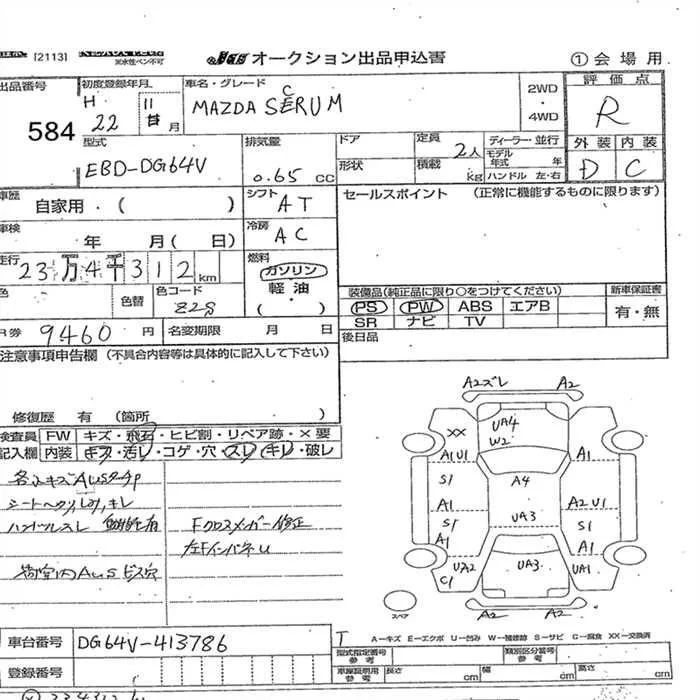 [2113]
※水性ペン不可
オークション出品申込書
①会場用
出品番号
584
初度登録年月
H 22 11 月
車名・グレード
MAZDA SCRUM
2WD
・
4WD
評価点
R
外装 内装
D C
型式
EBD-DG64V
排気量
0.65 cc
ドア
形状
定員
2人
積載
kg
ディーラー・並行
モデル年式 年
ハンドル 左・右
車歴
自家用・( )
シフト
AT
セールスポイント (正常に機能するものに限ります)
車検
年 月( 日)
冷房
AC
走行
23万4千312km
燃料
ガソリン
軽油
・( )
色
色替
色コード
Z2S
装備品(純正品に限り○をつけてください)
PS PW ABS エアB
SR ナビ TV
新車保証書
有・無
R券 9460 円
名変期限 月 日
後日品
注意事項申告欄 (不具合内容等は具体的に記入して下さい)
修復歴 有 (箇所 )
検査員
記入欄
FW キズ・飛石・ヒビ割・リペア跡・×要
内装 キズ・汚レ・コゲ・穴・スレ・キレ・破レ
各キズAUSタッチP
シートヘタリ、キレ
ハンドルスレ
荷室内AUSビス穴
Fクロスメンバー修正
左FインパネU
A2ズレ A2
XX
UA4
W2
A1U1
A1
S1
A4
A1
A2U1
S1
S1
UA3
A1
A1
UA2
C1
UA3
UA1
A2
A2
スペア
A－キズ E－エクボ U－凹み W－補修跡 S－サビ C－腐食 XX－交換済
車台番号
DG64V-413786
型式指定番号
参考
類別区分番号
参考
登録番号
車庫証明用
参考
長さ cm 幅 cm 高さ cm